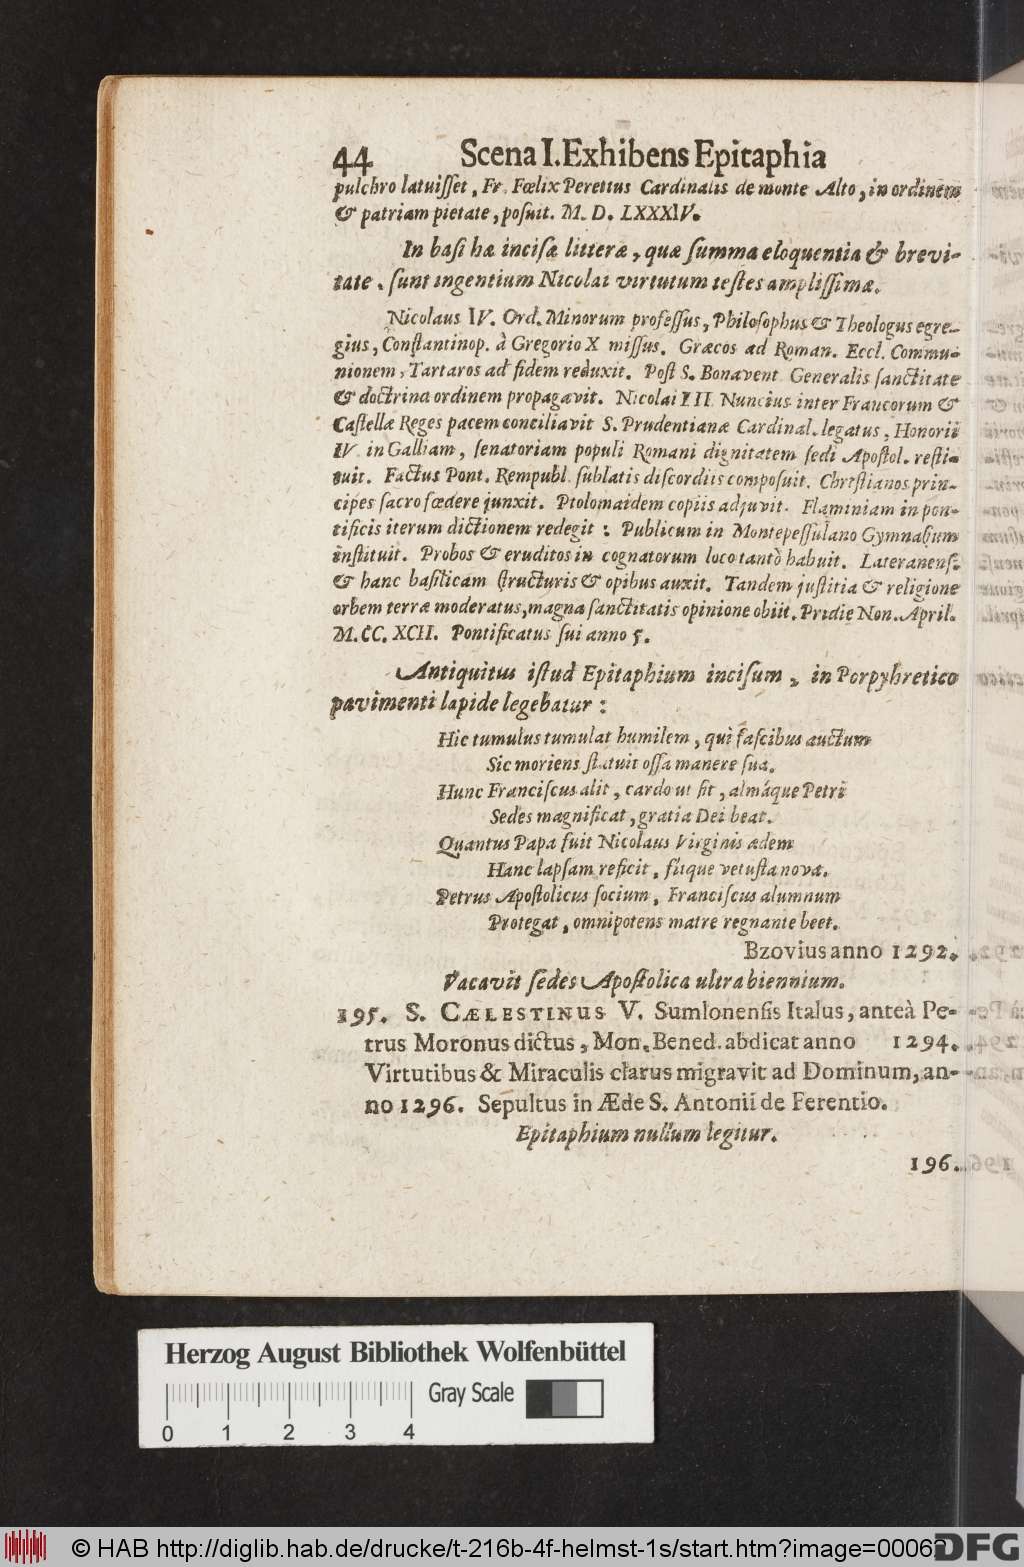 44 Scena I. Exhibens Epitaphia
pulchro latuisset, Fr. Fœlix Perettus Cardinalis de monte Alto, in ordinem
& patriam pietate, posuit. M. D. LXXXIV.
In basi hæ incisæ litteræ, quæ summa eloquentia & brevi-
tate, sunt ingentium Nicolai virtutum testes amplissimæ.
Nicolaus IV. Ord. Minorum professus, Philosophus & Theologus egre-
gius, Constantinop. à Gregorio X missus. Græcos ad Roman. Eccl. Commu-
nionem, Tartaros ad fidem reduxit. Post S. Bonavent Generalis sanctitate
& doctrina ordinem propagavit. Nicolai III Nuncius inter Francorum &
Castellæ Reges pacem conciliavit S. Prudentianæ Cardinal. legatus, Honorii
IV. in Galliam, senatoriam populi Romani dignitatem sedi Apostol. resti-
tuit. Factus Pont. Rempubl. sublatis discordiis composuit. Christianos prin-
cipes sacro fœdere junxit. Ptolomaidem copiis adjuvit. Flaminiam in pon-
tificis iterum dictionem redegit: Publicum in Montepessulano Gymnasium
instituit. Probos & eruditos in cognatorum loco tantò habuit. Lateranens.
& hanc basilicam structuris & opibus auxit. Tandem justitia & religione
orbem terræ moderatus, magna sanctitatis opinione obiit. Pridie Non. April.
M. CC. XCII. Pontificatus sui anno 5.
Antiquitus istud Epitaphium incisum, in Porpyhretico
pavimenti lapide legebatur:
Hic tumulus tumulat humilem, qui fascibus auctum
Sic moriens statuit ossa manere sua.
Hunc Franciscus alit, cardo ut fit, almáque Petri
Sedes magnificat, gratia Dei beat.
Quantus Papa fuit Nicolaus Virginis ædem
Hanc lapsam reficit, fitque vetusta nova.
Petrus Apostolicus socium, Franciscus alumnum
Protegat, omnipotens matre regnante beet.
Bzovius anno 1292.
Vacavit sedes Apostolica ultra biennium.
195. S. CÆLESTINUS V. Sumlonensis Italus, anteà Pe-
trus Moronus dictus, Mon. Bened. abdicat anno 1294.
Virtutibus & Miraculis clarus migravit ad Dominum, an-
no 1296. Sepultus in Æde S. Antonii de Ferentio.
Epitaphium nullum legitur.
196.
Herzog August Bibliothek Wolfenbüttel
Gray Scale
0 1 2 3 4
© HAB http://diglib.hab.de/drucke/t-216b-4f-helmst-1s/start.htm?image=00062
DFG